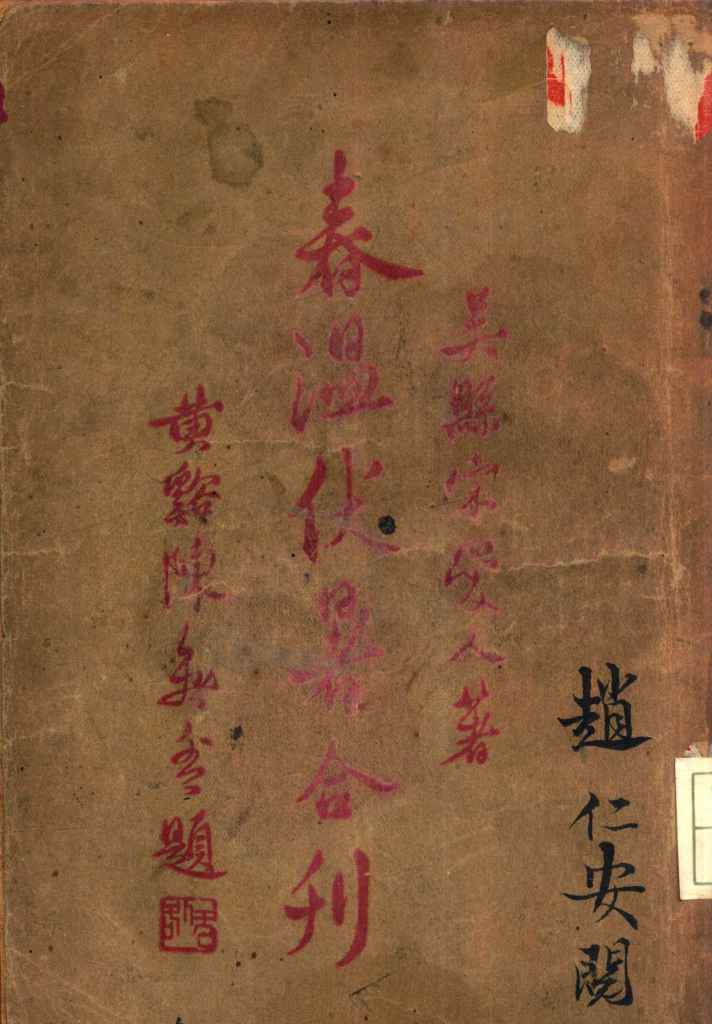 趙仁安閱
吳縣宋愛人著
春温伏暑合刊
黃谿陳無咎題